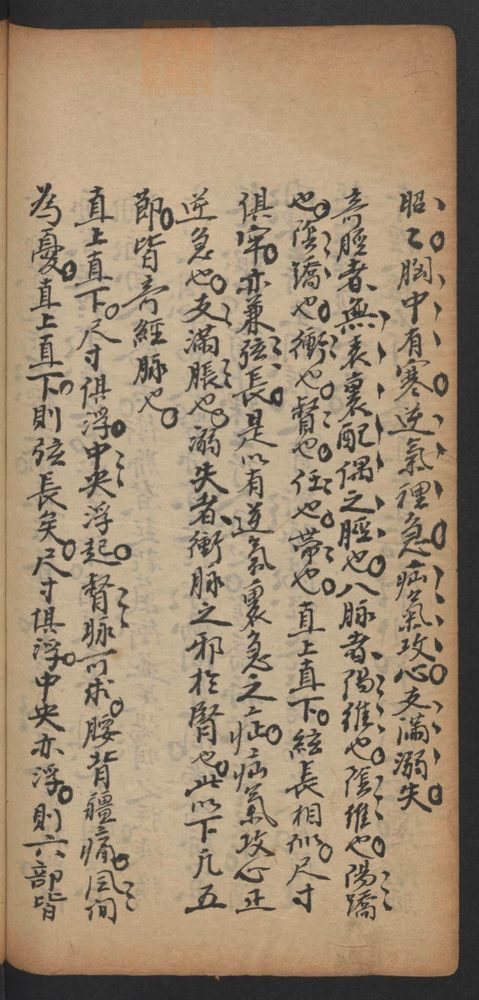 昭〻胸中有寒逆氣裡急疝氣攻心支滿溺失
奇脛者無表裏配偶之脛也八脉者陽維也陰維也陽蹻
也陰蹻也衝也督也任也帶也直上直下絃長相似尺寸
俱牢亦兼弦長是以有逆氣裏急之症疝氣攻心正
逆急也支滿脹也溺失者衝脉之邪於腎也此以下凡五
節皆奇經脉也
直上直下尺寸俱浮中央浮起督脉可求腰背彊痛風癎
為憂直上直下則弦長矣尺寸俱浮中央亦浮則六部皆